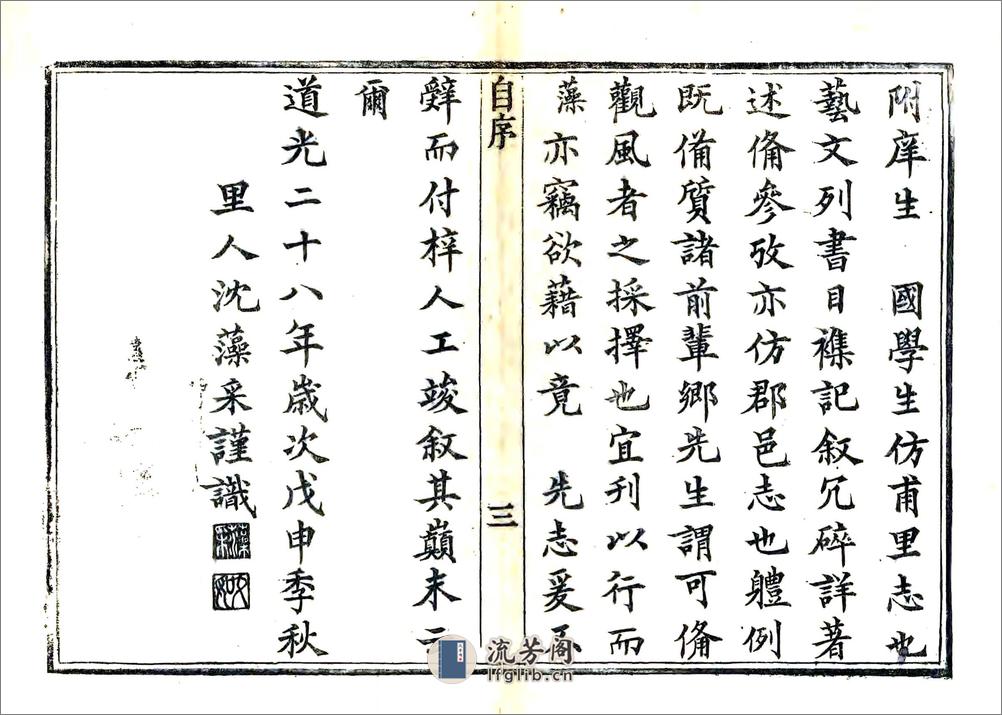 附庠生　國學生仿甫里志也
藝文列書目襍記叙冗碎詳著
述俻參攷亦仿郡邑志也軆例
既俻質諸前輩鄉先生謂可俻
觀風者之採擇也宜刊以行而
藻亦竊欲藉以竟　先志爰不
自序
三
辭而付梓人工竣叙其巔末云
爾
道光二十八年歲次戊申季秋
里人沈藻采謹識
流芳阁
lfglib.cn